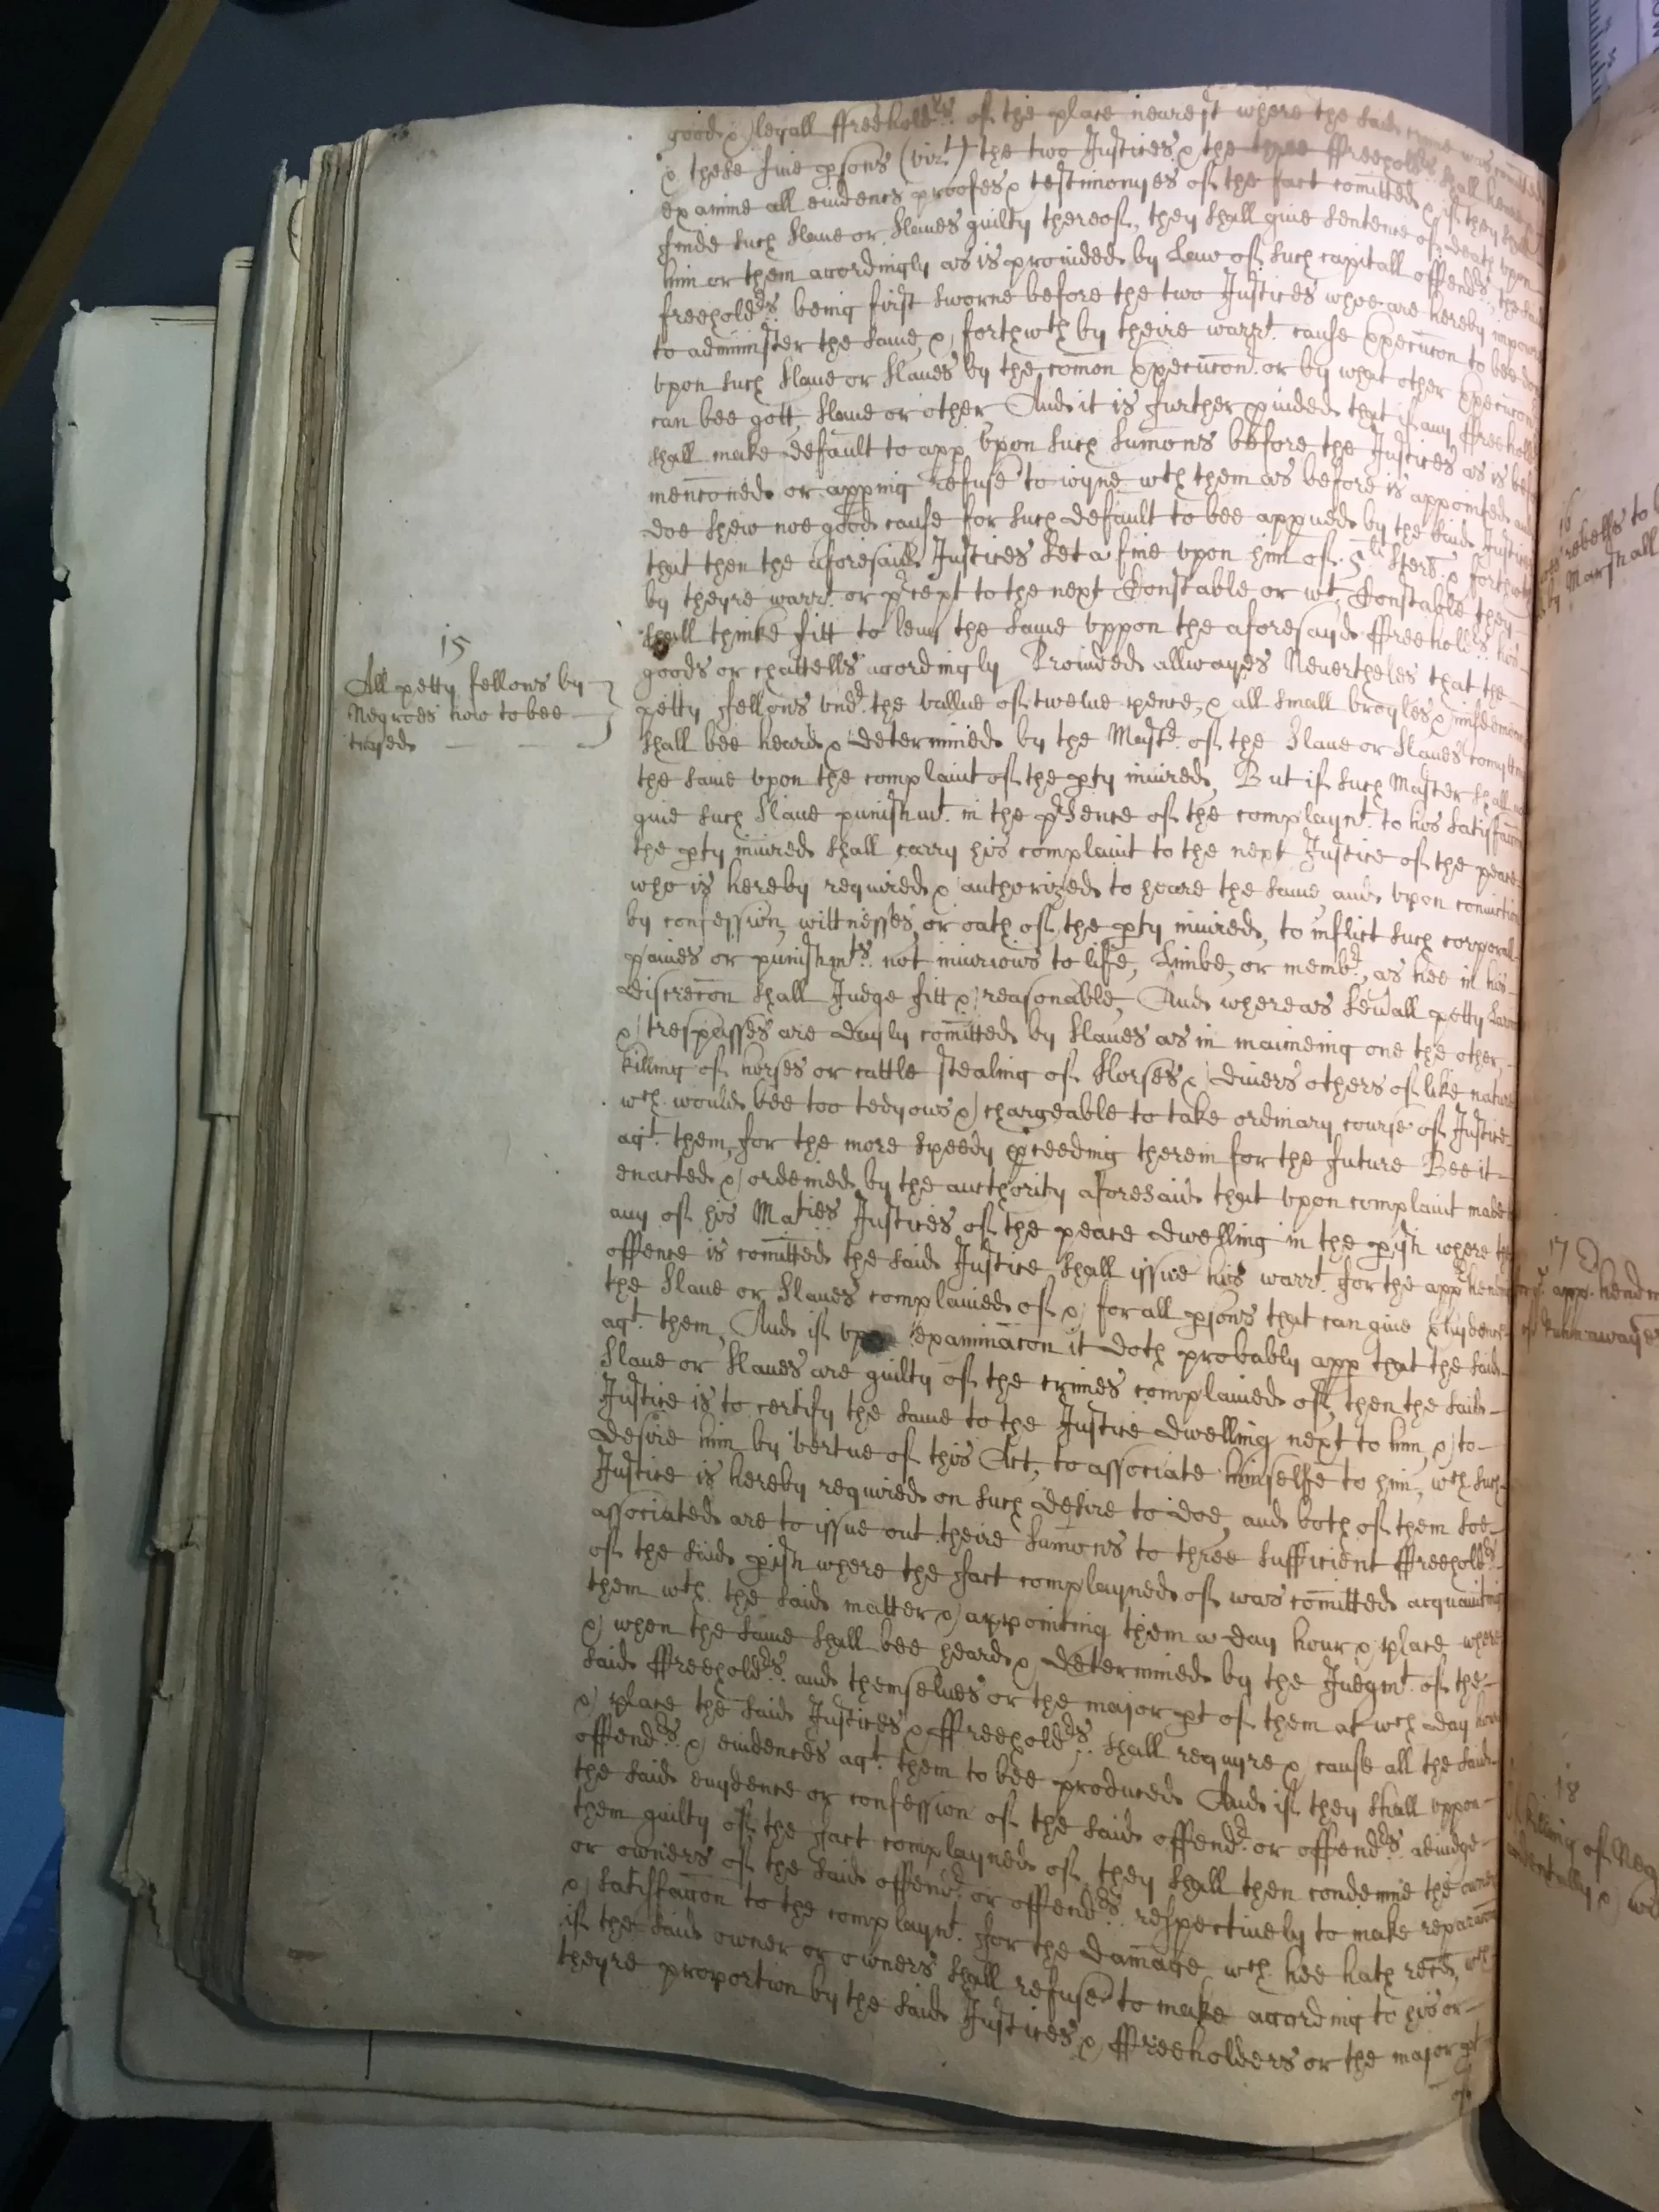 good & legall ffreehold.rs of the place nearest where the said crime was comitted
& these fiue psons (vizt.) the two Justices & the three ffreeholdrs. shall heare &
examine all euidences proofes & testimonyes of the fact comitted & if they shall
finde such slaue or slaues guilty thereof, they shall giue sentence of death vpon
him or them acordingly as is prouided by Law of such capitall offendrs., the said
freeholdrs. being first sworne before the two Justices whoe are hereby impowred
to administer the same, & forthwth by theire warrt. cause Execucon to bee don
vpon such slaue or slaues by the comon Execucon. or by what other Execucon
can bee gott, slaue or other And it is further puided that if any ffreehold
shall make default to app vpon such sumons before the Justices as is befo
mencioned or apping refuse to ioyne wth them as before is appointed and
doe shew noe good cause for such default to bee appued by the said Justices
that then the aforesaid Justices set a fine vpon him of 5li. sterl. & forthwth
by theyre warrt. or pcept to the next Constable or wt. Constable they
shall thinke fitt to leuy the same vppon the aforesayd ffreeholdrs. his
goods or chattells acordingly Prouided allwayes Neuertheles that the
petty fellons vndr. the vallue of twelue pence, & all small broyles & misdemen
shall bee heard & determined by the Mastr. of the slaue or slaues comytti
the same vpon the complaint of the pty iniured, But if such Master shall not
giue such slaue punishmt. in the psence of the complaynt. to his satisfaccon
the pty iniured shall carry his complaint to the next Justice of the peace
who is hereby required & authorized to heare the same, and vpon conviction
by confession, wittnesses, or oath of the pty iniured, to inflict such corporal
paines or punishmts. not iniurious to life, Limbe, or membr., as hee in his
discrecon shall Judge fitt & reasonable, And whereas seuall petty Larc
& trespasses are dayly comitted by slaues as in maimeing one the other,
killing of horses or cattle stealing of Horses & diuers others of like nature
wch. would bee too tedyous & chargeable to take ordinary course of Justice
agt. them, for the more speedy pceeding therein for the future Bee it
enacted & ordeined by the aucthority aforesaid that vpon complaint made
any of his Maties Justices of the peace dwelling in the pish where the
offence is comitted the said Justice shall issue his warrt. for the apphending
the slaue or slaues complained of & for all psons that can giue Euidence
agt. them, And if vpon examinacon it doth probably app that the said
slaue or slaues are guilty of the crimes complained of, then the said
Justice is to certify the same to the Justice dwelling next to him, & to
desire him by vertue of this Act, to associate himselfe to him, wch such
Justice is hereby required on such desire to doe, and both of them soe
associated are to issue out theire sumons to three sufficient ffreeholdrs.
of the said pish where the fact complayned of was comitted acquainting
them wth. the said matter & appointing them a day hour & place where
& when the same shall bee heard & determined by the Judgmt. of the
said ffreeholdrs. and themselues or the major pt of them at wch day hour
& place the said Justices & ffreeholdrs. shall requyre & cause all the said
offendrs. & euidences agt. them to bee produced And if they shall vppon
the said euydence or confession of the said offendr. or offendrs. adiudge
them guilty of the fact complayned of, they shall then condemne the owner
or owners of the said offendr. or offendrs. respectively to make reparacon
& satisfaccon to the complaynt. for the damage wch. hee hath recd, wch
if the said owner or owners shall refuse to make according to his or
theyre proportion by the said Justices & ffreeholders or the major pt
of
15
All petty fellows by
Negroes how to bee
tryed
16
rebells to
by Marshall
17
app.hend
Runnawayes
18
killing of Neg